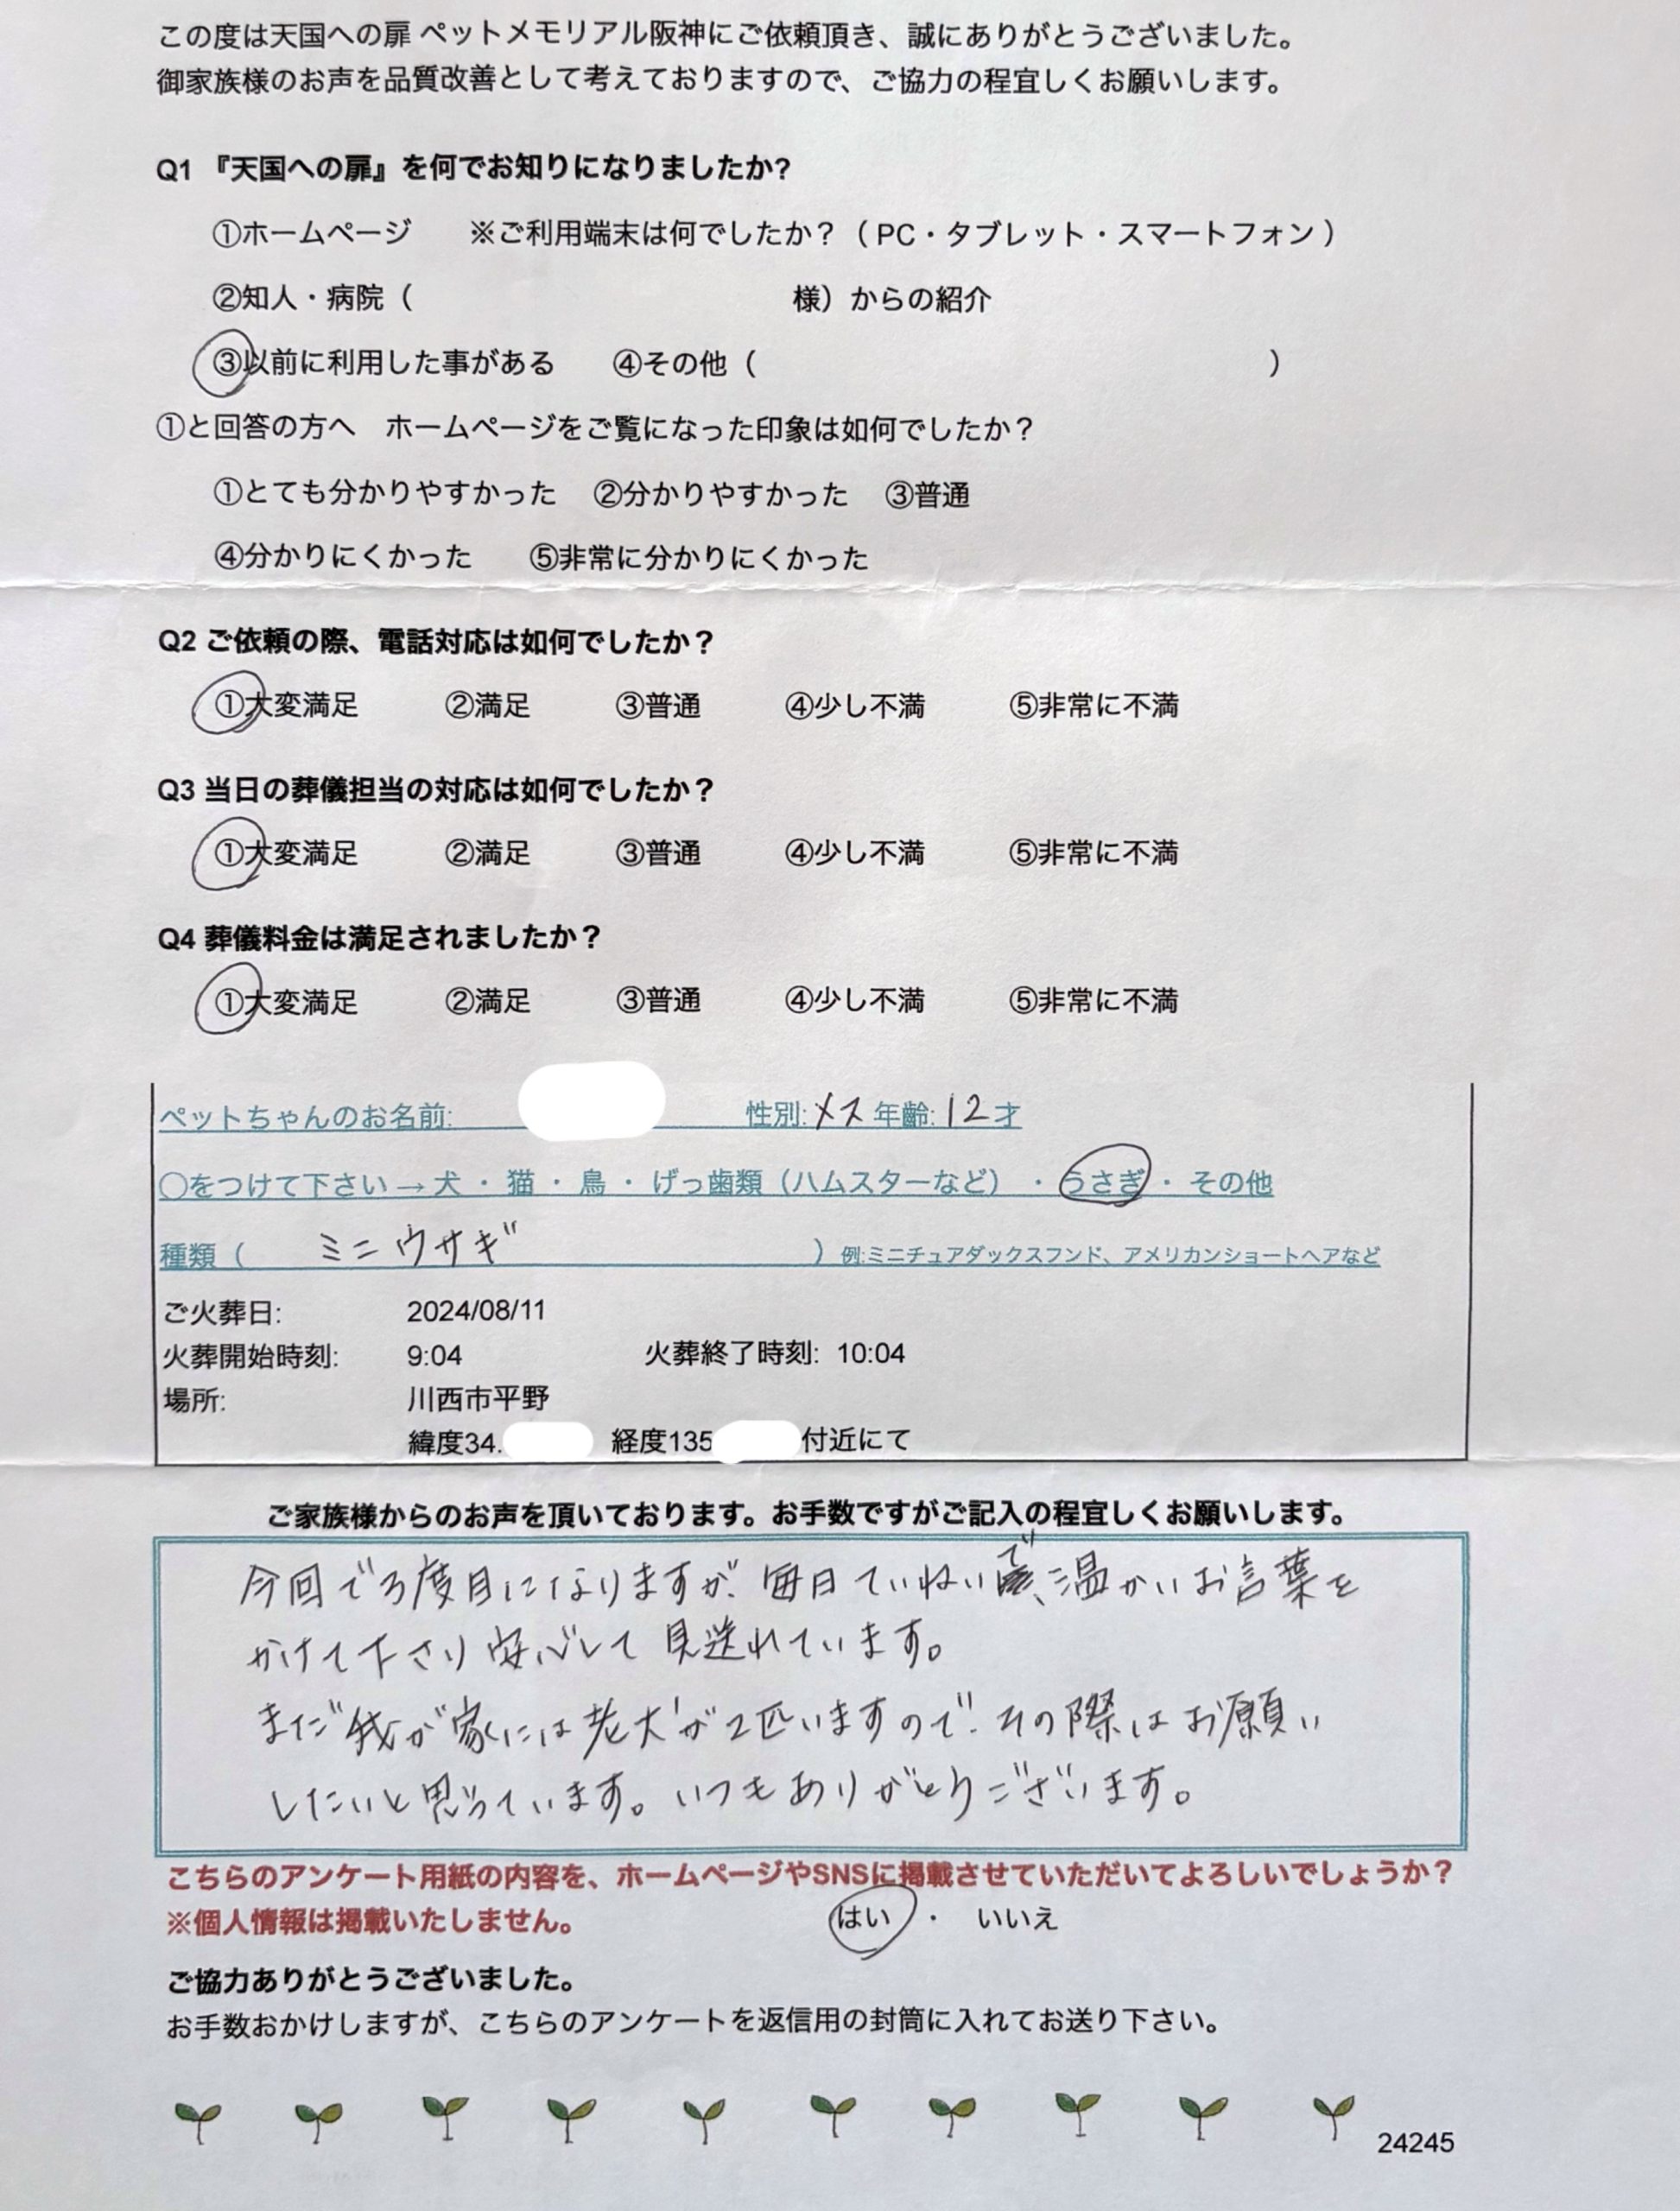 この度は天国への扉 ペットメモリアル阪神にご依頼頂き、誠にありがとうございました。
御家族様のお声を品質改善として考えておりますので、ご協力の程宜しくお願いします。
Q1 『天国への扉』を何でお知りになりましたか?
①ホームページ ※ご利用端末は何でしたか?(PC・タブレット・スマートフォン)
②知人・病院( 様)からの紹介
③以前に利用した事がある ④その他( )
①と回答の方へ ホームページをご覧になった印象は如何でしたか?
①とても分かりやすかった ②分かりやすかった ③普通
④分かりにくかった ⑤非常に分かりにくかった
Q2 ご依頼の際、電話対応は如何でしたか?
①大変満足 ②満足 ③普通 ④少し不満 ⑤非常に不満
Q3 当日の葬儀担当の対応は如何でしたか?
①大変満足 ②満足 ③普通 ④少し不満 ⑤非常に不満
Q4 葬儀料金は満足されましたか?
①大変満足 ②満足 ③普通 ④少し不満 ⑤非常に不満
ペットちゃんのお名前: 性別:メス 年齢:12才
○をつけて下さい→犬・猫・鳥・げっ歯類(ハムスターなど)・うさぎ・その他
種類( ミニウサギ )例:ミニチュアダックスフンド、アメリカンショートヘアなど
ご火葬日: 2024/08/11
火葬開始時刻: 9:04 火葬終了時刻: 10:04
場所: 川西市平野
緯度34. 経度135 付近にて
ご家族様からのお声を頂いております。お手数ですがご記入の程宜しくお願いします。
今回で3度目になりますが、毎日ていねいで、温かいお言葉を
かけて下さり安心して見送れています。
まだ我が家には老犬が2匹いますので、その際はお願い
したいと思っています。いつもありがとうございます。
こちらのアンケート用紙の内容を、ホームページやSNSに掲載させていただいてよろしいでしょうか?
※個人情報は掲載いたしません。 はい ・ いいえ
ご協力ありがとうございました。
お手数おかけしますが、こちらのアンケートを返信用の封筒に入れてお送り下さい。
24245